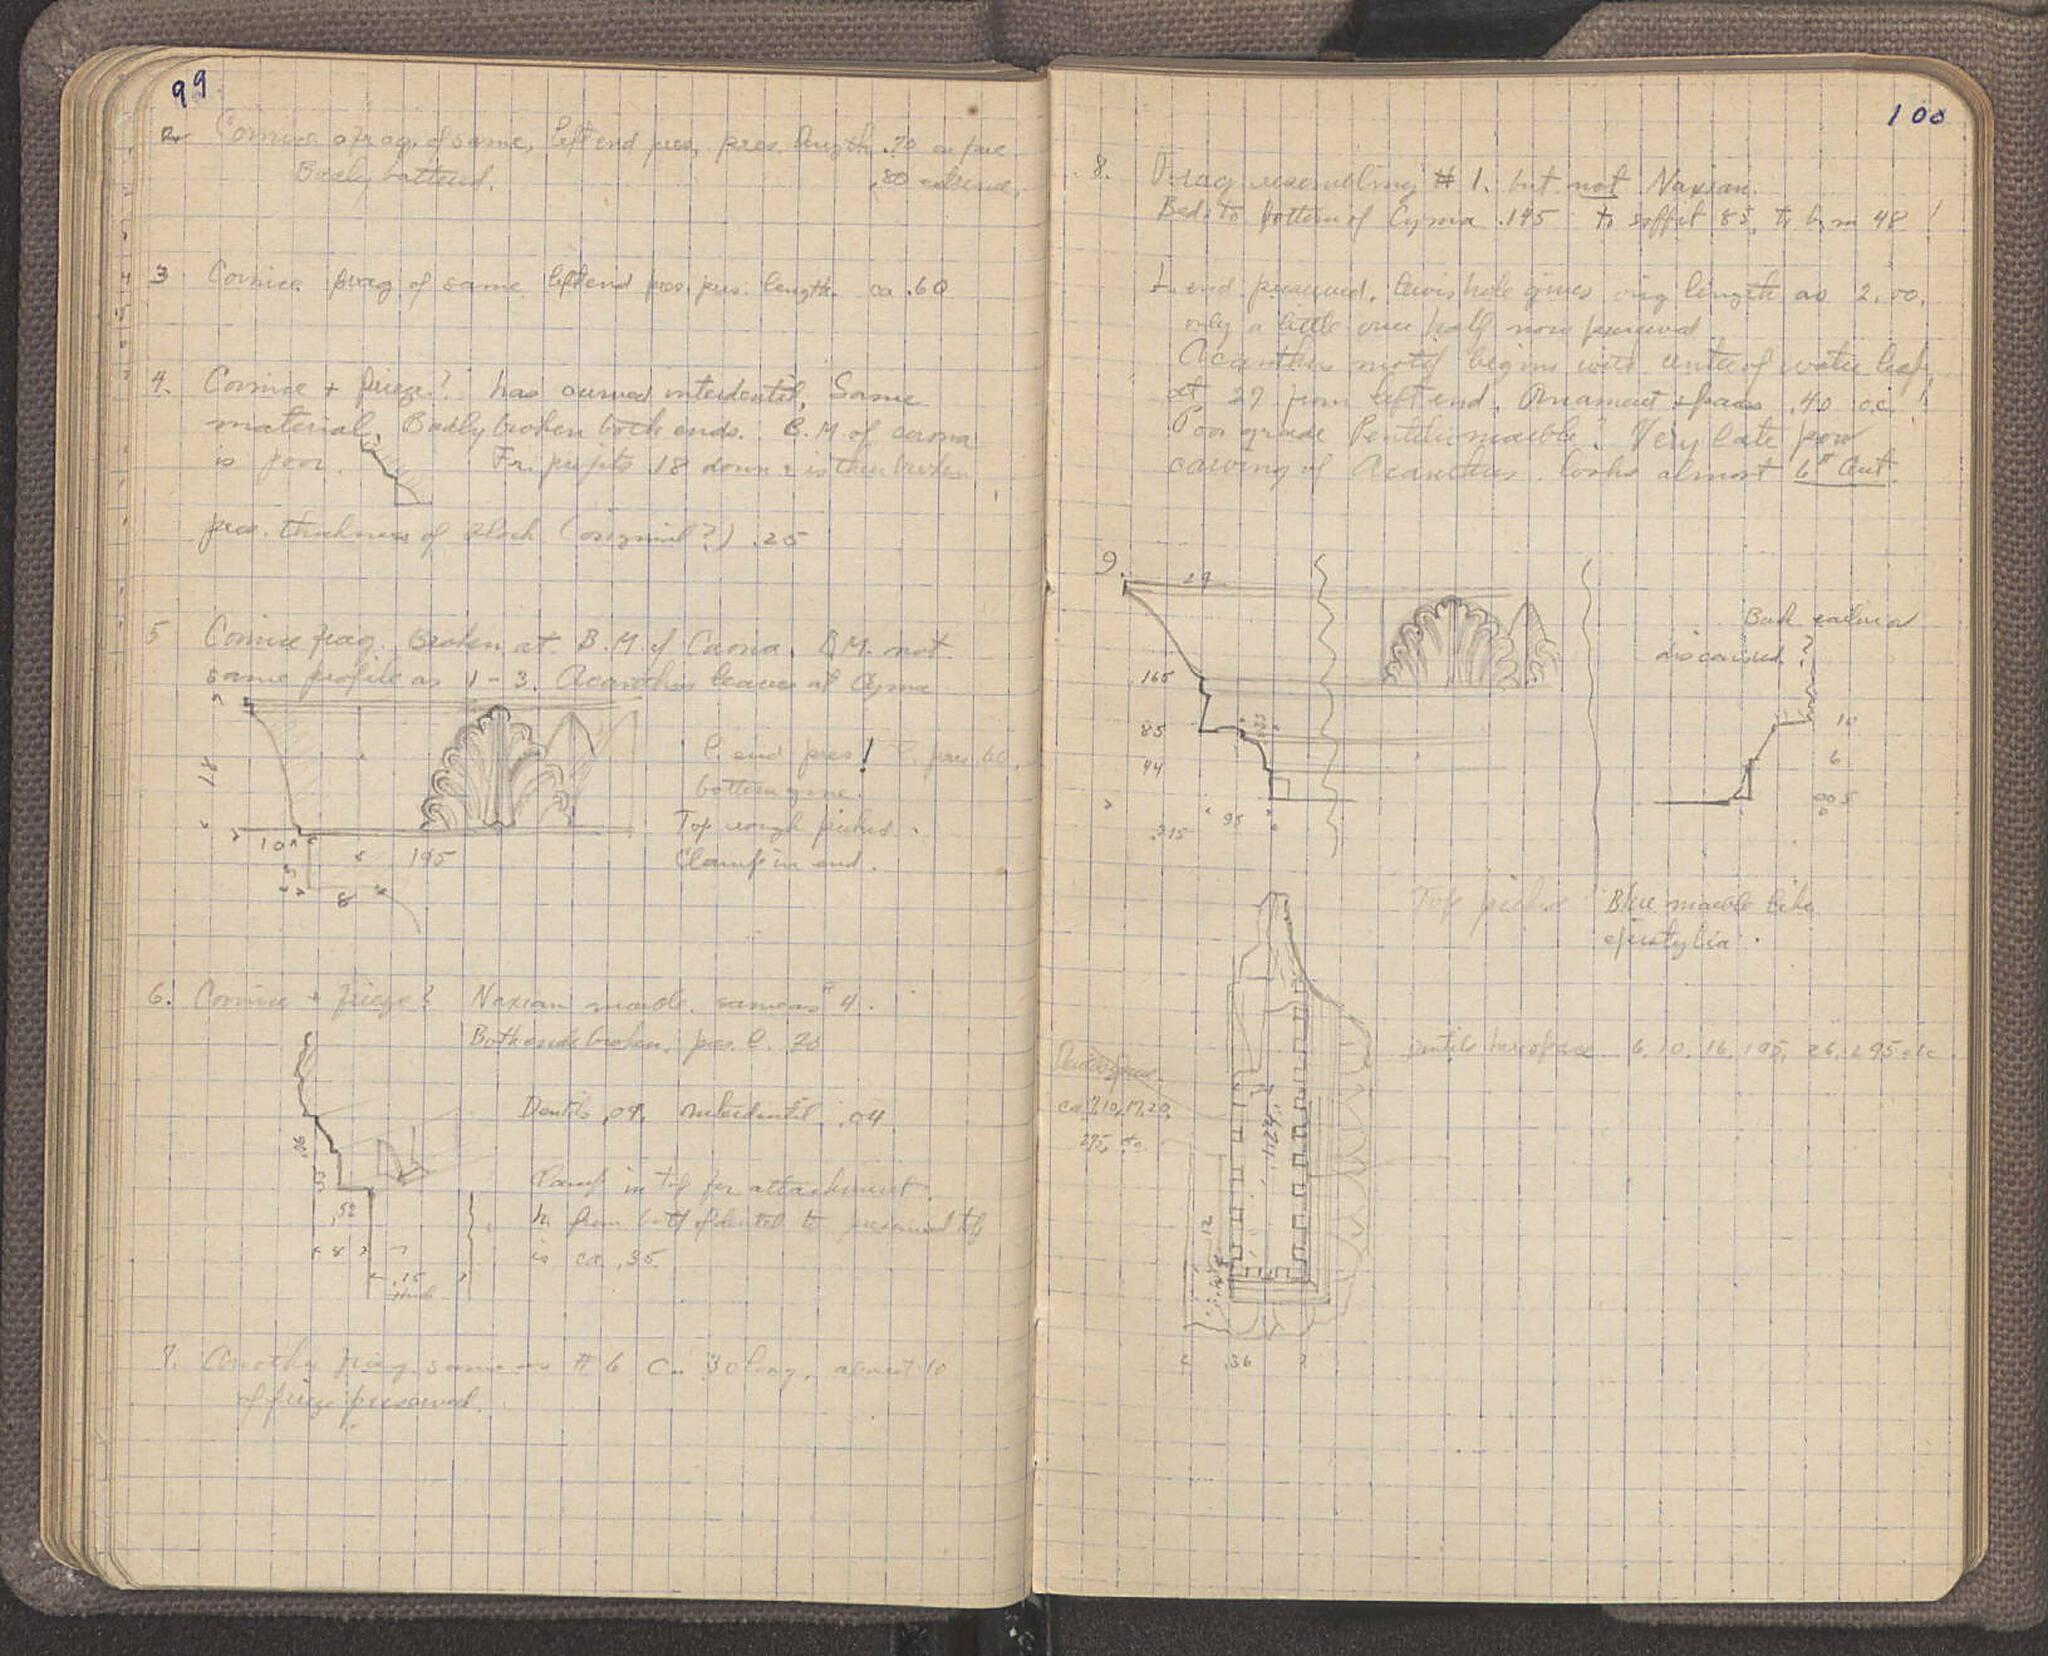 99
2. Cornice frag. of same, left end pres, pres. length .70 on face
Badly battered. .80 extreme.
3 Cornice frag of same left end pres. pres. length. ca .60
4. Cornice + frieze? has curved interdentil, Same
material, Badly broken both ends. B.M. of corona
is poor. Fr. profits 18 down & is then broken
pres. thickness of block (original?) .25
5 Cornice frag. Broken at B.M. of Corona. B.M. not
same profile as 1-3. Acanthus leaves at Cyma
18
l. end pres!
bottom gone.
Top rough picked.
Clamp in end.
10
195
8
6. Cornice + frieze? Naxian marble. same as #4.
Both ends broken, pres. l. 70
Dentils .09, interdentil .04
in top for attachment.
h. from bott of dentil to preserved top
is ca .35
.52
8
.15
7. Another frag. same as #6 ca. 30 long, about 10
of frieze preserved.
100
8. Frag resembling #1. but not Naxian.
Bed to bottom of Cyma .145 to soffit 85, to 48
L. end preserved, lewis hole gives orig length as 2.00.
only a little over half now preserved
Acanthus motif begins with center of water leaf
at 27 from left end. Ornament spaces .40 o.c.!
Poor grade Pentelic marble? Very late poor
carving of Acanthus. looks almost 6th Cent.
9.
29
Back
discarded?
.165
85
44
.315
95
10
6
005
Top picked
Blue marble like
epistylia.
dentils have space 6. 10. 16. 195, 26. 295 etc
ca 7, 10, 17, 20,
275, etc.
12
.36